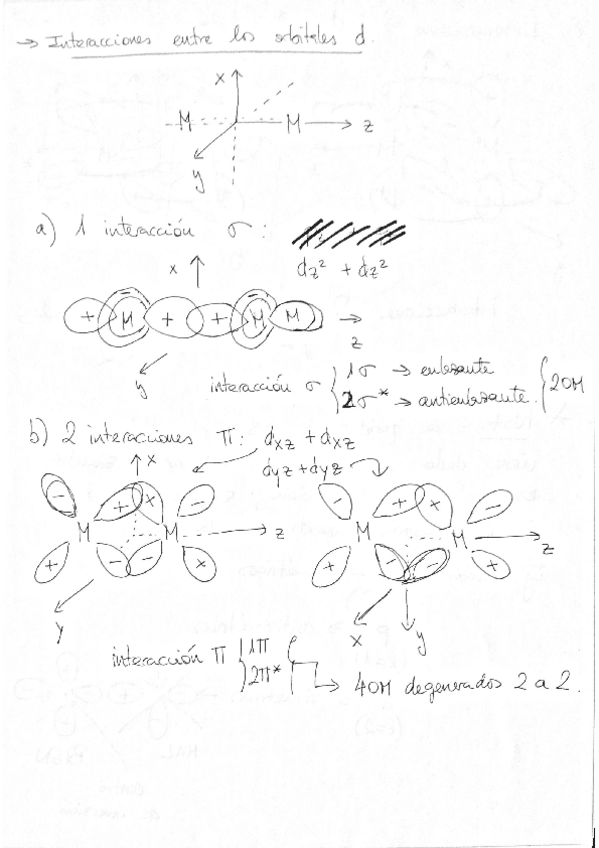 → Interacciones entre los orbitales d.
x
M M z
y
a) 1 interacción σ:
dz² + dz²
x
+ M + + M M
z
y
interacción σ { 1σ → enlazante
2σ* → antienlazante. { 2OM
b) 2 interacciones π: dxz + dxz
dyz + dyz
x
- + + - - + + -
M M z M M z
+ - - + + - - +
y x y
interacción π { 1π
2π*
→ 4OM degenerados 2 a 2.